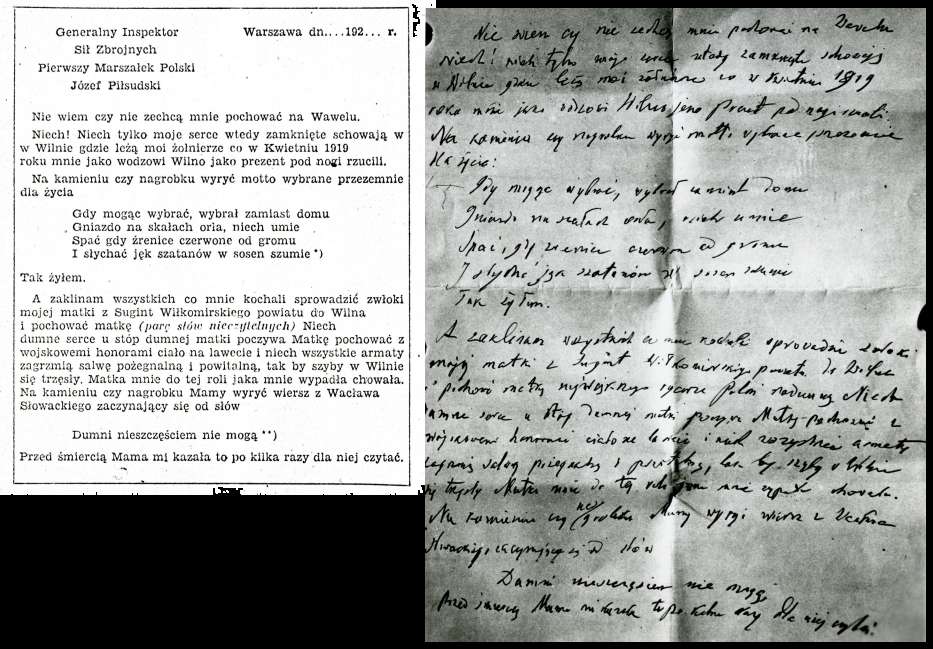 Generalny Inspektor Warszawa dn....192... r.
Sił Zbrojnych
Pierwszy Marszałek Polski
Józef Piłsudski
Nie wiem czy nie zechcą mnie pochować na Wawelu.
Niech! Niech tylko moje serce wtedy zamknięte schowają w
w Wilnie gdzie leżą moi żołnierze co w Kwietniu 1919
roku mnie jako wodzowi Wilno jako prezent pod nogi rzucili.
Na kamieniu czy nagrobku wyryć motto wybrane przezemnie
dla życia
Gdy mogąc wybrać, wybrał zamiast domu
Gniazdo na skałach orła, niech umie
Spać gdy źrenice czerwone od gromu
I słychać jęk szatanów w sosen szumie *)
Tak żyłem.
A zaklinam wszystkich co mnie kochali sprowadzić zwłoki
mojej matki z Sugint Wiłkomirskiego powiatu do Wilna
i pochować matkę (parę słów nieczytelnych) Niech
dumne serce u stóp dumnej matki poczywa Matkę pochować z
wojskowemi honorami ciało na lawecie i niech wszystkie armaty
zagrzmią salwę pożegnalną i powitalną, tak by szyby w Wilnie
się trzęsły. Matka mnie do tej roli jaka mnie wypadła chowała.
Na kamieniu czy nagrobku Mamy wyryć wiersz z Wacława
Słowackiego zaczynający się od słów
Dumni nieszczęściem nie mogą **)
Przed śmiercią Mama mi kazała to po kilka razy dla niej czytać.
Nie wiem czy nie zechcą mnie pochować na Wawelu
Niech! niech tylko moje serce wtedy zamknięte schowają
w Wilnie gdzie leżą moi żołnierze co w kwietniu 1919
roku mnie jako wodzowi Wilno jako prezent pod nogi rzucili.
Na kamieniu czy nagrobku wyryć motto wybrane przezemnie
dla życia:
Gdy mogąc wybrać, wybrał zamiast domu
Gniazdo na skałach orła, niech umie
Spać, gdy źrenice czerwone od gromu
I słychać jęk szatanów w sosen szumie
Tak żyłem.
A zaklinam wszystkich co mnie kochali sprowadzić zwłoki
mojej matki z Sugint Wiłkomirskiego powiatu do Wilna
i pochować matkę największego rycerza Polski nademną Niech
dumne serce u stóp dumnej matki poczywa Matkę pochować z
wojskowemi honorami ciało na lawecie i niech wszystkie armaty
zagrzmią salwą pożegnalną i powitalną, tak by szyby w Wilnie
się trzęsły Matka mnie do tej roli jaka mnie wypadła chowała.
Na kamieniu czy nagrobku Mamy wyryć wiersz z Wacława
Słowackiego zaczynający się od słów
Dumni nieszczęściem nie mogą
Przed śmiercią Mama mi kazała to po kilka razy dla niej czytać.